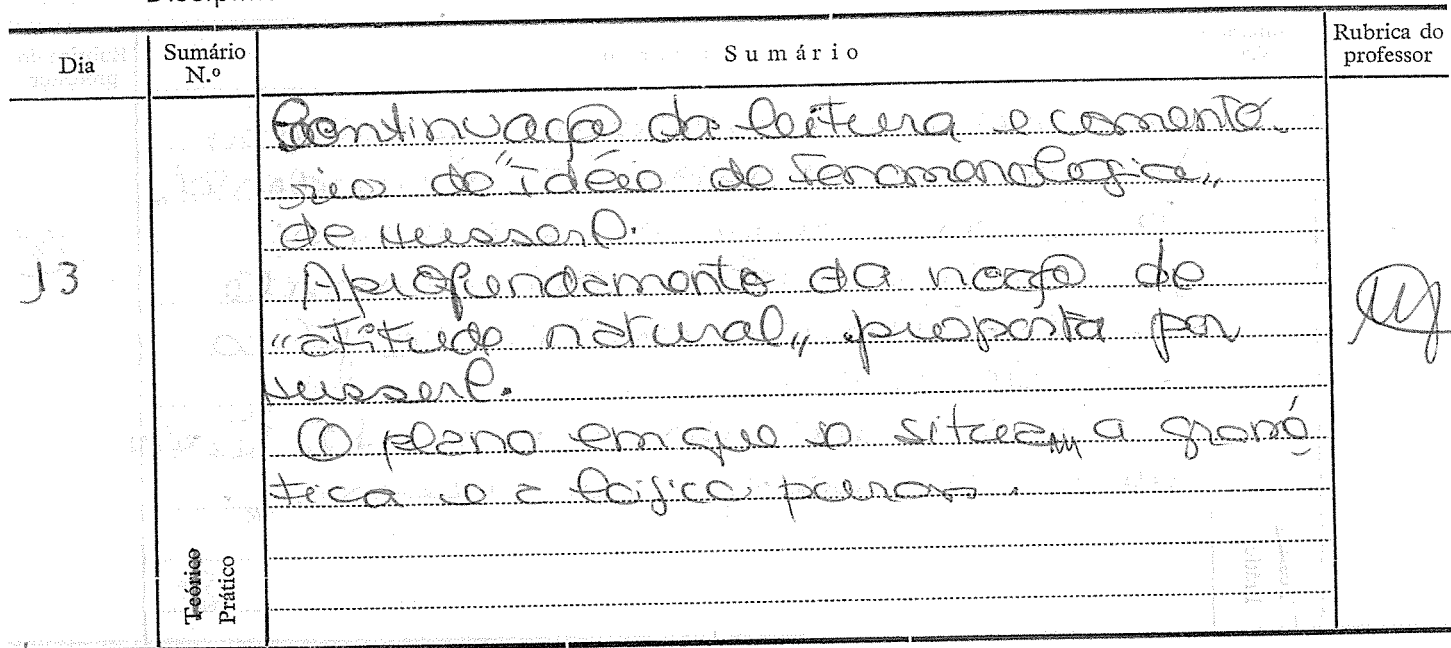 Dia
Sumário N.º
Sumário
Rubrica do professor
Continuação da leitura e comentá-
rio de "Idéia de fenomenologia"
de Husserl.
13
Aprofundamento da noção de
"atitude natural" proposta por
Husserl.
O plano em que se situam a gramá
tica e a lógica puras.
Teórico
Prático